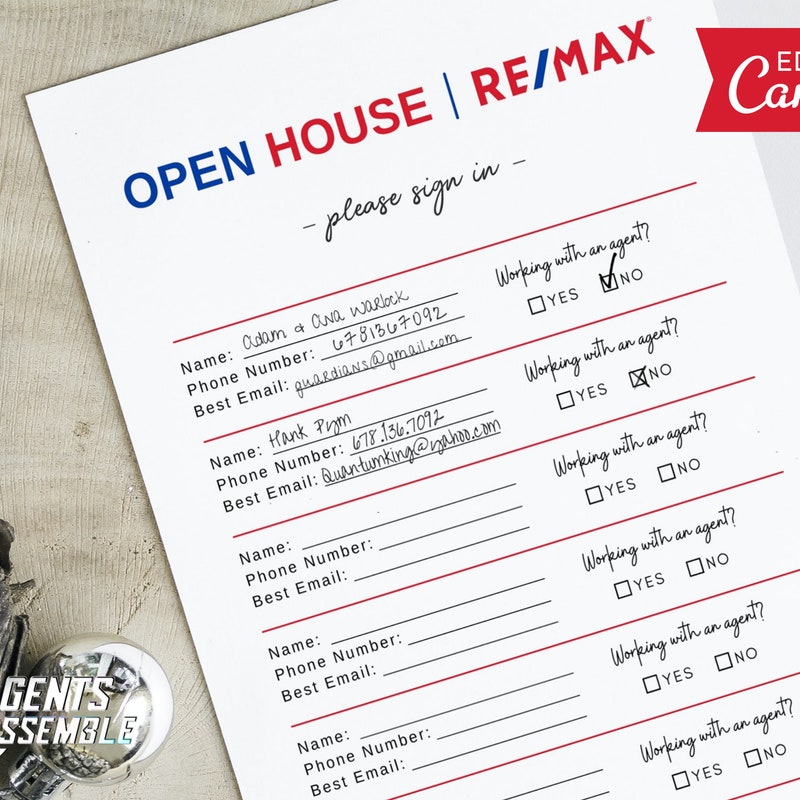 OPEN HOUSE | RE/MAX®
EDI
Can
- please sign in -
Working with an agent?
YES NO
Name: Adam & Ava Warlock
Phone Number: 6781367092
Best Email: guardians@gmail.com
Working with an agent?
YES NO
Name: Hank Pym
Phone Number: 678.136.7092
Best Email: Quantumking@yahoo.com
Working with an agent?
YES NO
Name:
Phone Number:
Best Email:
Working with an agent?
YES NO
Name:
Phone Number:
Best Email:
Working with an agent?
YES NO
Name:
Phone Number:
Best Email:
Working with an agent?
YES NO
GENTS
SSEMBLE